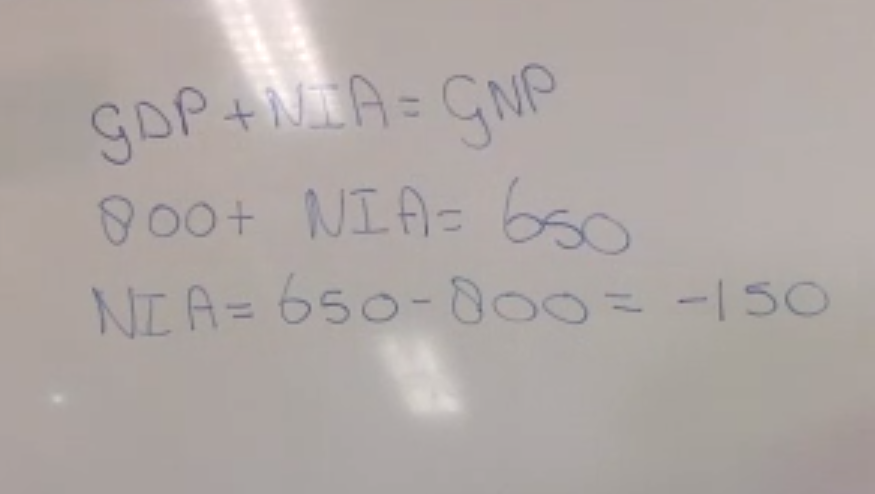 GDP + NIA = GNP
800 + NIA = 650
NIA = 650 - 800 = -150